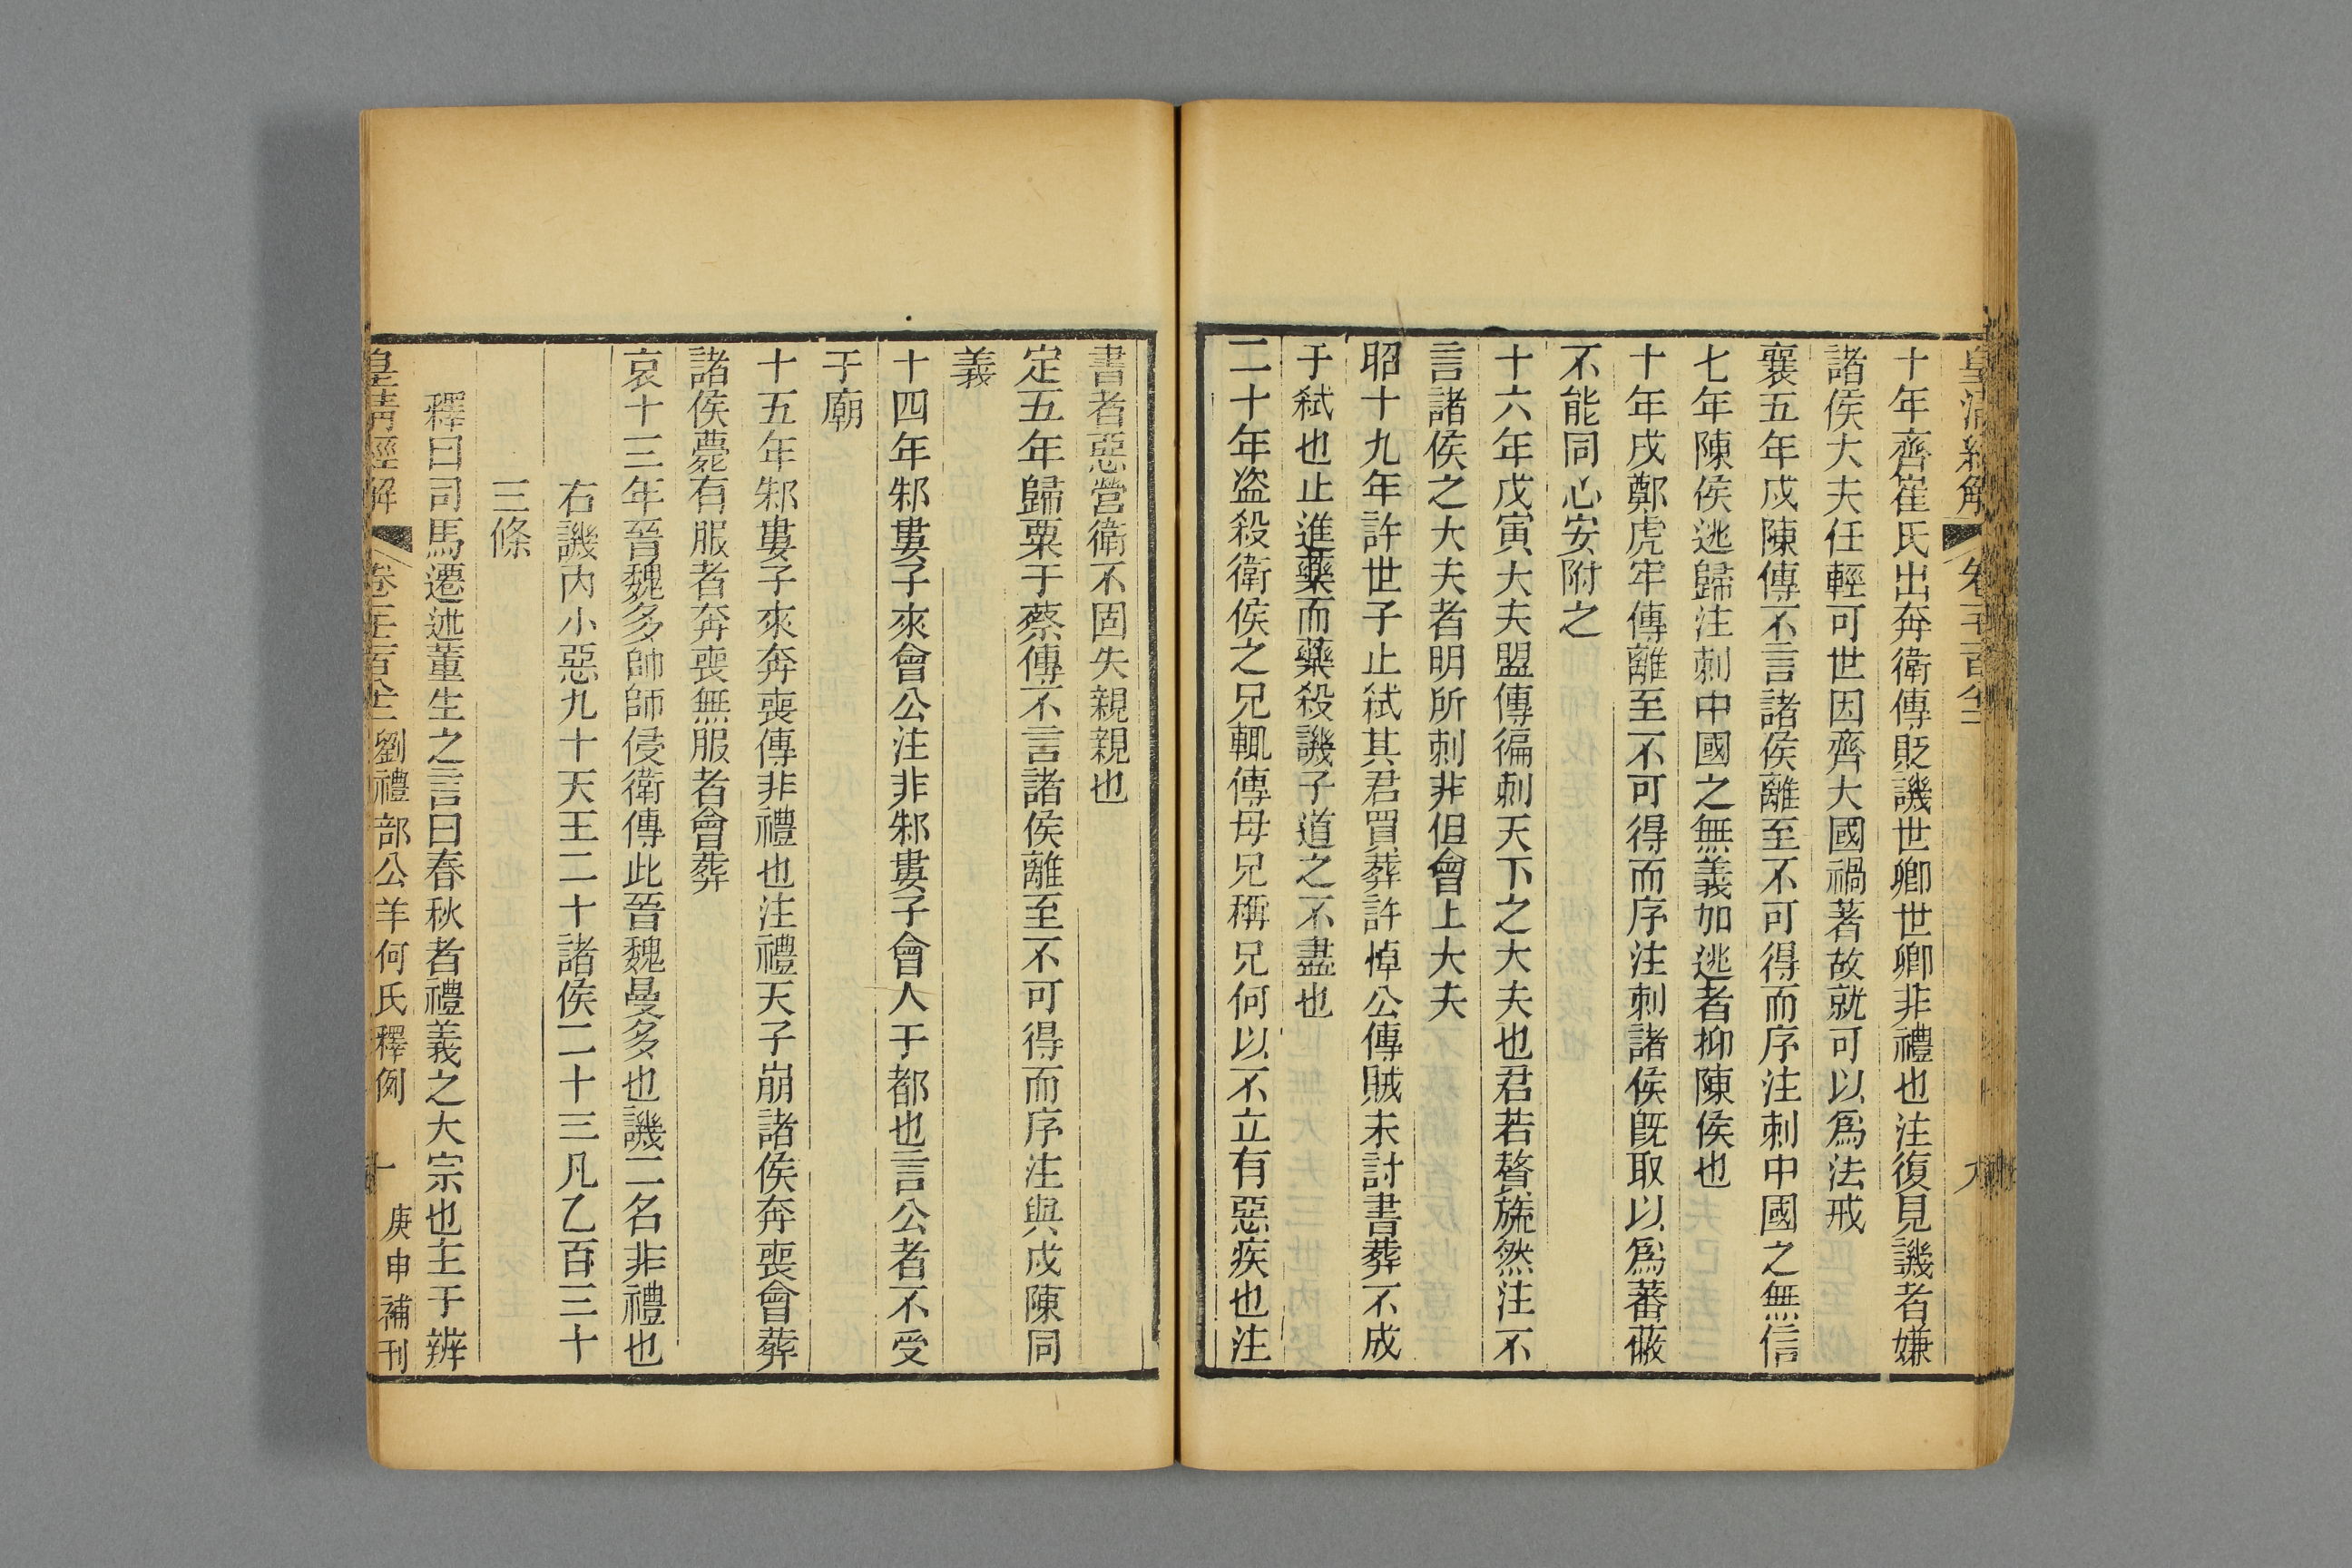 皇清經解
卷
十年齊崔氏出奔衛傳貶譏世卿世卿非禮也注復見譏者嫌
諸侯大夫任輕可世因齊大國禍著故就可以爲法戒
襄五年戍陳傳不言諸侯離至不可得而序注刺中國之無信
七年陳侯逃歸注刺中國之無義加逃者抑陳侯也
十年戍鄭虎牢傳離至不可得而序注刺諸侯旣取以爲蕃蔽
不能同心安附之
十六年戊寅大夫盟傳徧刺天下之大夫也君若贅旒然注不
言諸侯之大夫者明所刺非但會上大夫
昭十九年許世子止弑其君買葬許悼公傳賊未討書葬不成
于弑也止進藥而藥殺譏子道之不盡也
二十年盗殺衛侯之兄輒傳母兄稱兄何以不立有惡疾也注
書者惡營衛不固失親親也
定五年歸粟于蔡傳不言諸侯離至不可得而序注與戍陳同
義
十四年邾婁子來會公注非邾婁子會人于都也言公者不受
于廟
十五年邾婁子來奔喪傳非禮也注禮天子崩諸侯奔喪會葬
諸侯薨有服者奔喪無服者會葬
哀十三年晉魏多帥師侵衛傳此晉魏曼多也譏二名非禮也
右譏内小惡九十天王二十諸侯二十三凡乙百三十
三條
釋曰司馬遷述董生之言曰春秋者禮義之大宗也主于辨
皇清經解 卷 劉禮部公羊何氏釋例 十 庚申補刊